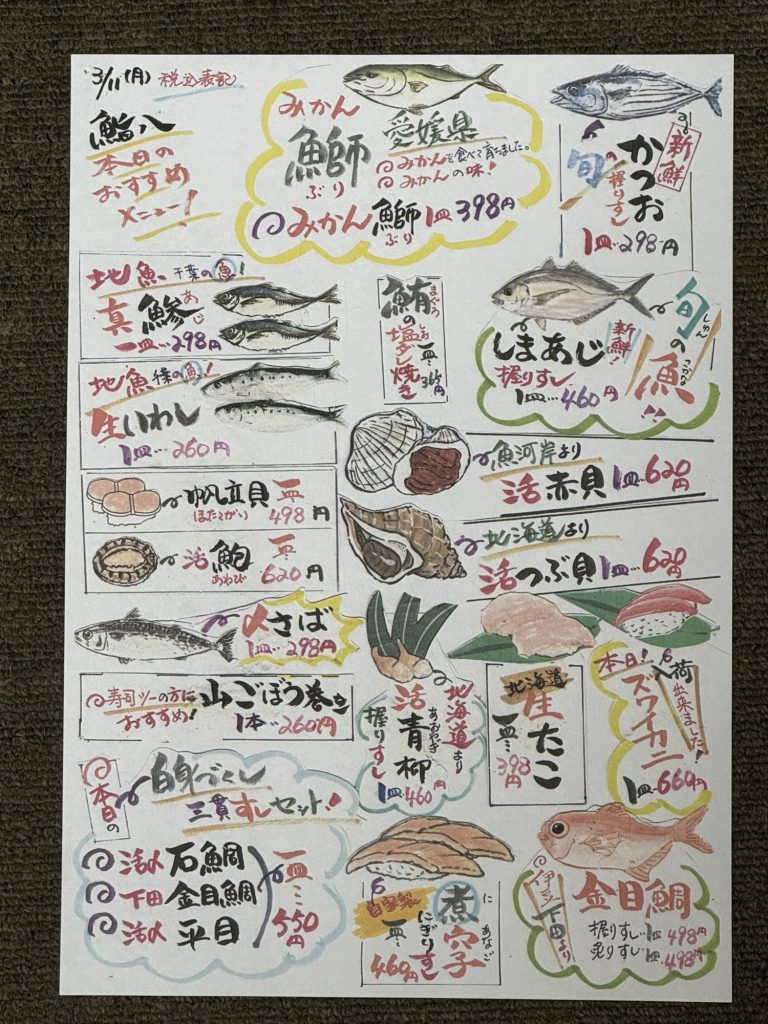 3/11(月) 税込表記
鮨八
本日の
おすすめ
メニュー!
みかん
鰤
ぶり
愛媛県
みかんを食べて育ちました。
みかんの味!
みかん鰤 1皿398円
ぶり
新鮮
かつお
旬の握りすし
1皿…298円
地魚 千葉の魚!
真鯵
あじ
一皿…298円
地魚 千葉の魚!
生いわし
1皿…260円
鮪の塩ダレ焼き
まぐろ
しお
一皿…365円
旬の魚
しゅん
さかな
しまあじ
新鮮!
握りすし
1皿…460円
帆立貝 一皿…
ほたてがい
498円
活鮑 一皿…
あわび
620円
魚河岸より
活赤貝 1皿…620円
北海道より
活つぶ貝 1皿…620円
〆さば
1皿…298円
寿司ツーの方に
おすすめ!
山ごぼう巻き
1本…260円
北海道より
活青柳
あおやぎ
握りすし
1皿…460円
北海道
生たこ
一皿…398円
本日!
入荷出来ました!
ズワイカニ
1皿…660円
本日の
白身づくし
三貫すしセット!
活〆 石鯛
下田 金目鯛
活〆 平目
一皿…550円
自家製
煮穴子
に あなご
にぎりすし
一皿…460円
伊豆下田より
金目鯛
握りすし 1皿…498円
炙りすし 1皿…498円